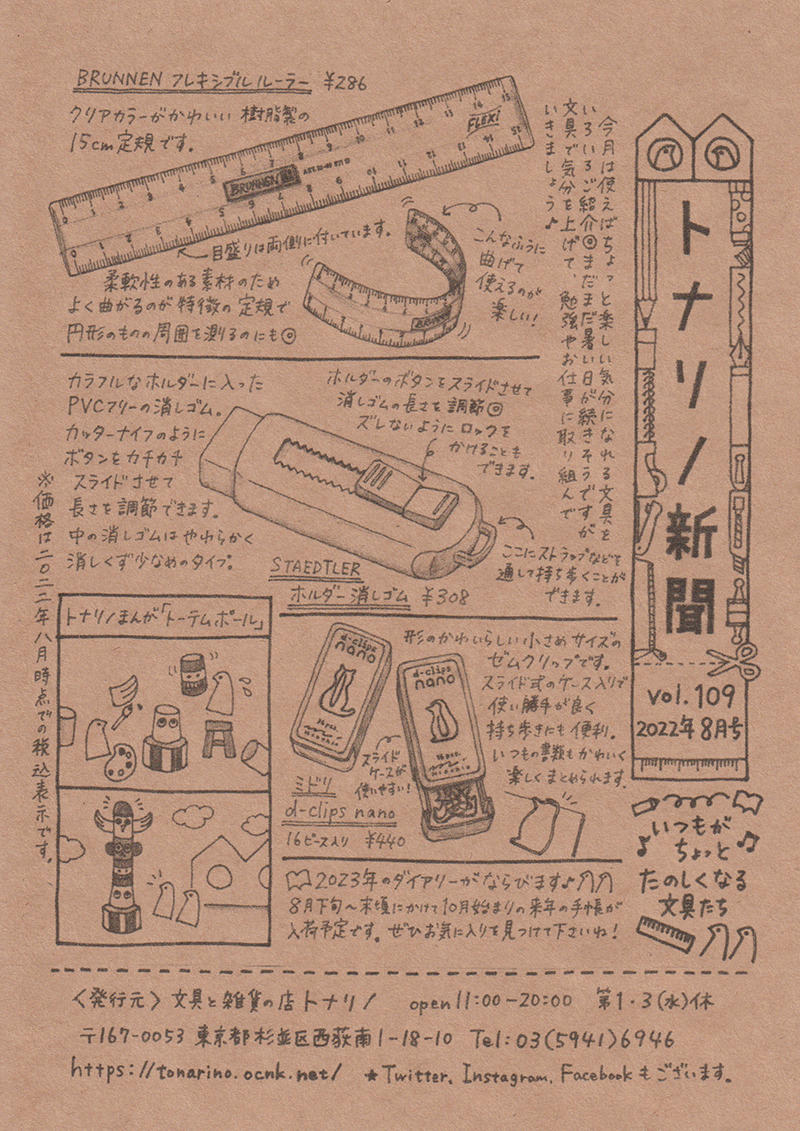 トナリノ新聞
vol.109
2022年8月号
いつもが
ちょっと
たのしくなる
文具たち
今月は使えばちょっと楽しい気分になれる文具を
いろいろご紹介◎まだまだ暑い日が続きそうですが
文具で気分を上げて、勉強やお仕事に取り組んで
いきましょう♪
BRUNNEN フレキシブルルーラー ¥286
クリアカラーがかわいい樹脂製の
15cm定規です。
FLEXI
BRUNNEN
目盛りは両側に付いています。
こんなふうに
曲げて
使えるのが
楽しい!
柔軟性のある素材のため
よく曲がるのが特徴の定規で
円形のものの周囲を測るのにも◎
カラフルなホルダーに入った
PVCフリーの消しゴム。
カッターナイフのように
ボタンをカチカチ
スライドさせて
長さを調節できます。
中の消しゴムはやわらかく
消しくず少なめのタイプ。
ホルダーのボタンをスライドさせて
消しゴムの長さを調節◎
ズレないようにロックを
かけることも
できます。
ここにストラップなどを
通して持ち歩くことが
できます。
STAEDTLER
ホルダー消しゴム ¥308
※価格は二〇二二年八月時点での税込表示です。
トナリノまんが「トーテムポール」
d-clips
nano
d-clips
nano
形のかわいらしい小さめサイズの
ゼムクリップです。
スライド式のケース入りで
使い勝手が良く
持ち歩きにも便利。
いつもの書類もかわいく
楽しくまとめられます。
スライド
ケースが
使いやすい!
ミドリ
d-clips nano
16ピース入り ¥440
2023年のダイアリーがならびます♪
8月下旬〜末頃にかけて10月始まりの来年の手帳が
入荷予定です。ぜひお気に入りを見つけて下さいね!
〈発行元〉文具と雑貨の店トナリノ open11:00-20:00 第1・3(水)休
〒167-0053 東京都杉並区西荻南1-18-10 Tel:03(5941)6946
https://tonarino.ocnk.net/ ★Twitter、Instagram、Facebookもございます。